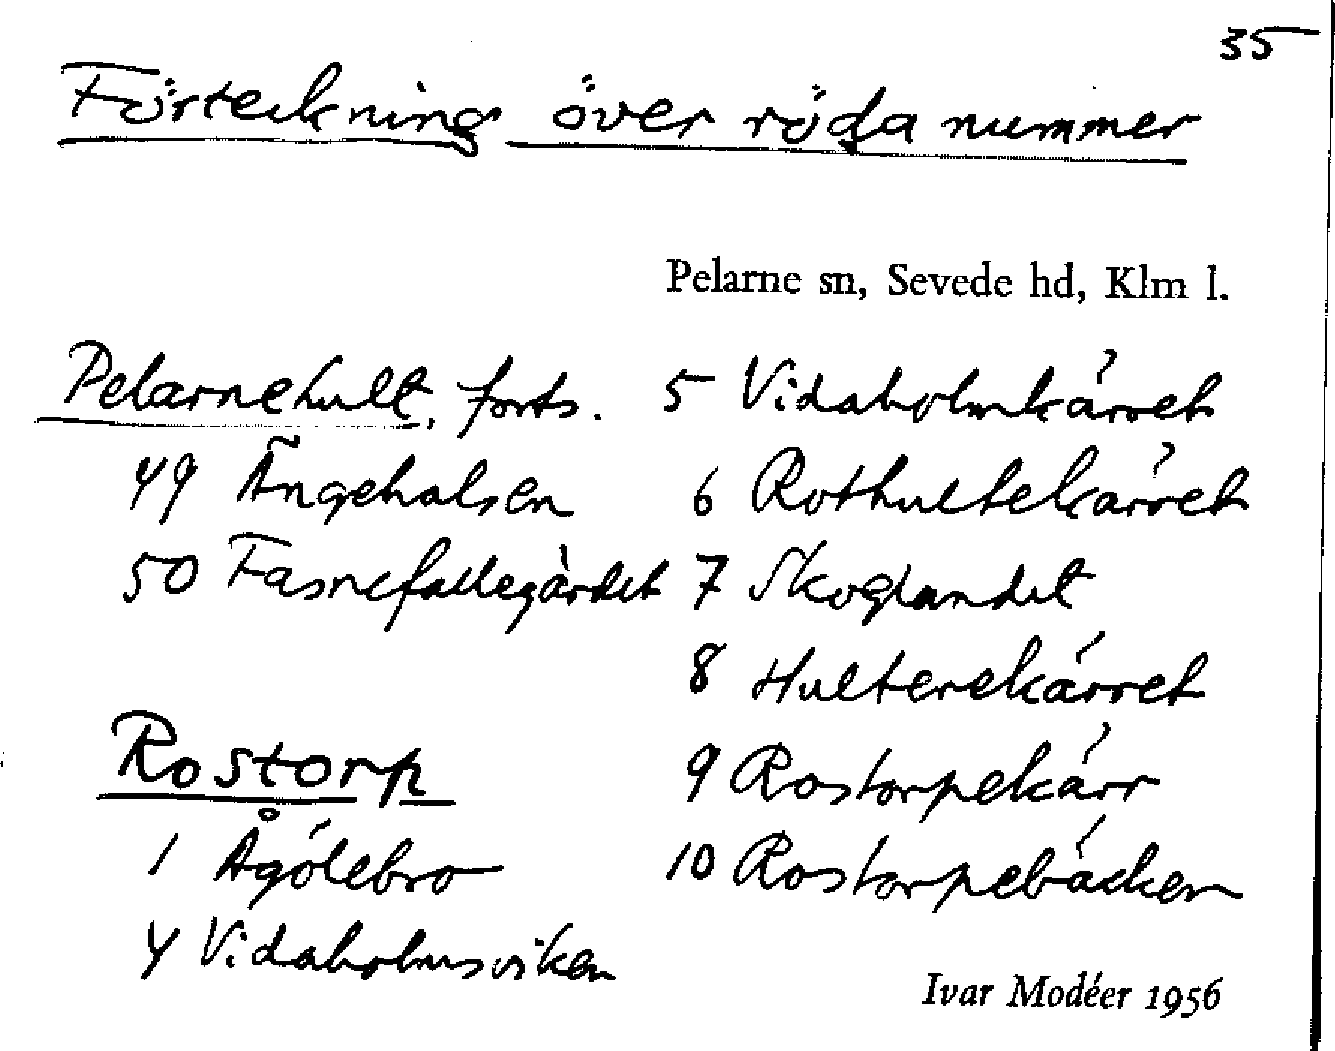 35
Förteckning över röda nummer
Pelarne sn, Sevede hd, Klm l.
Pelarnehult, forts.
49 Ängehalsen
50 Fasnefallegärdet
Rostorp
1 Ågölebro
4 Vidaholmsviken
5 Vidaholmkärret
6 Rothultekärret
7 Skoglandet
8 Hulterekärret
9 Rostorpekärr
10 Rostorpebäcken
Ivar Modéer 1956